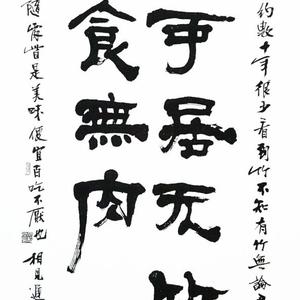 约數十年很少看到竹不知有竹無論
可居无竹
食無肉
隨處皆是美味便宜百吃不厭也